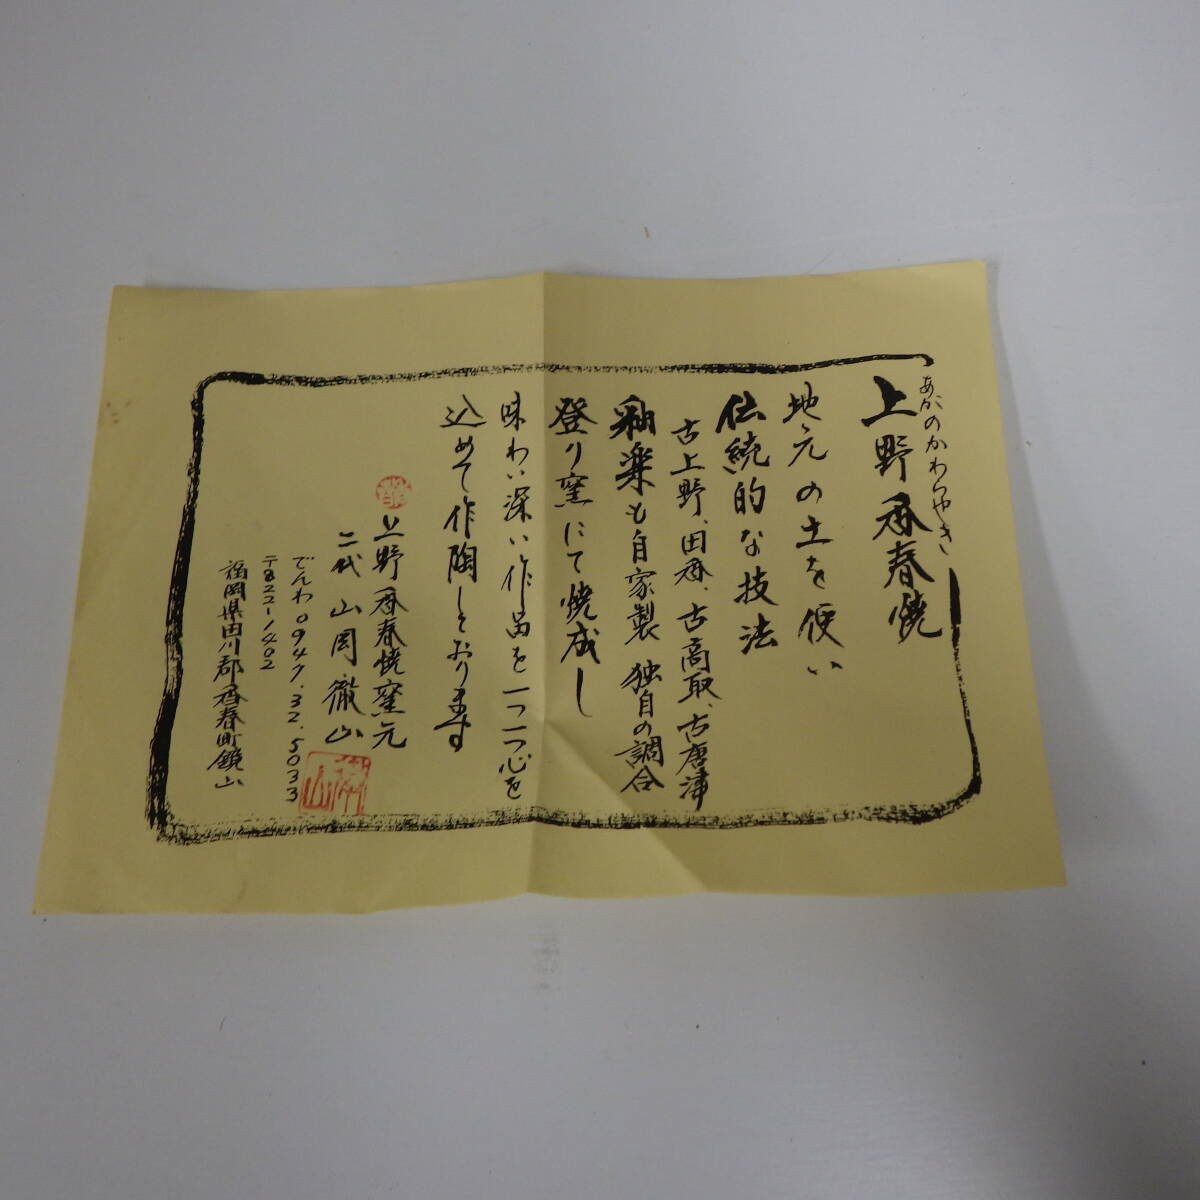 あがのかわらやき
上野香春焼
地元の土を使い
伝統的な技法
古上野、田香、古高取、古唐津
釉薬も自家製 独自の調合
登り窯にて焼成し
味わい深い作品を一つ一つ心を
込めて作陶しております
上野香春焼窯元
二代 山岡徹山
でんわ0947.32.5033
〒822-1402
福岡県田川郡香春町鏡山